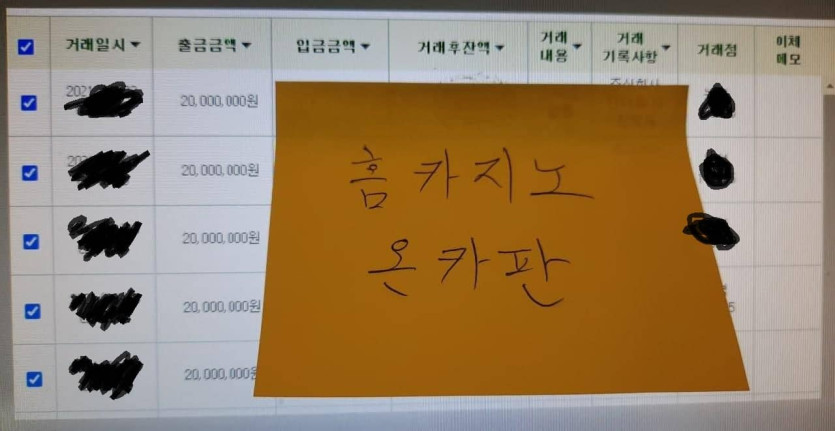 거래일시 출금금액 입금금액 거래후잔액 거래내용 거래기록사항 거래점 이체메모
20,000,000원
20,000,000원
홈카지노
20,000,000원
온카판
20,000,000원
20,000,000원